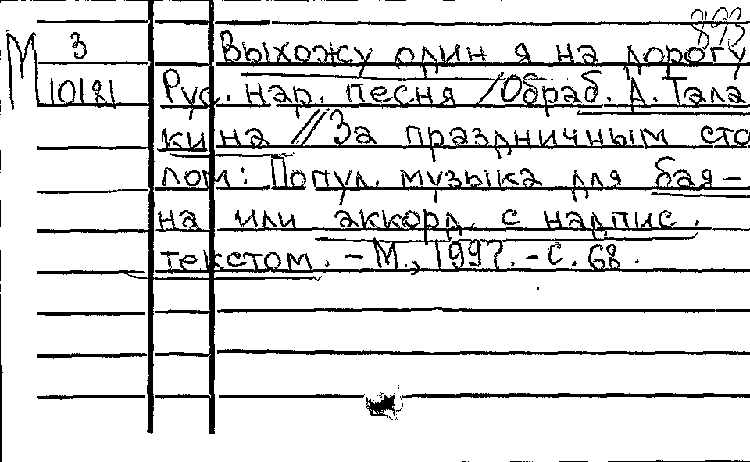 893
М 3 Выхожу один я на дорогу
10181 Рус. нар. песня / Обраб. А. Тала
кина // За праздничным сто
лом: Попул. музыка для бая-
на или аккорд. с надпис.
текстом. - М., 1997. - С. 68.